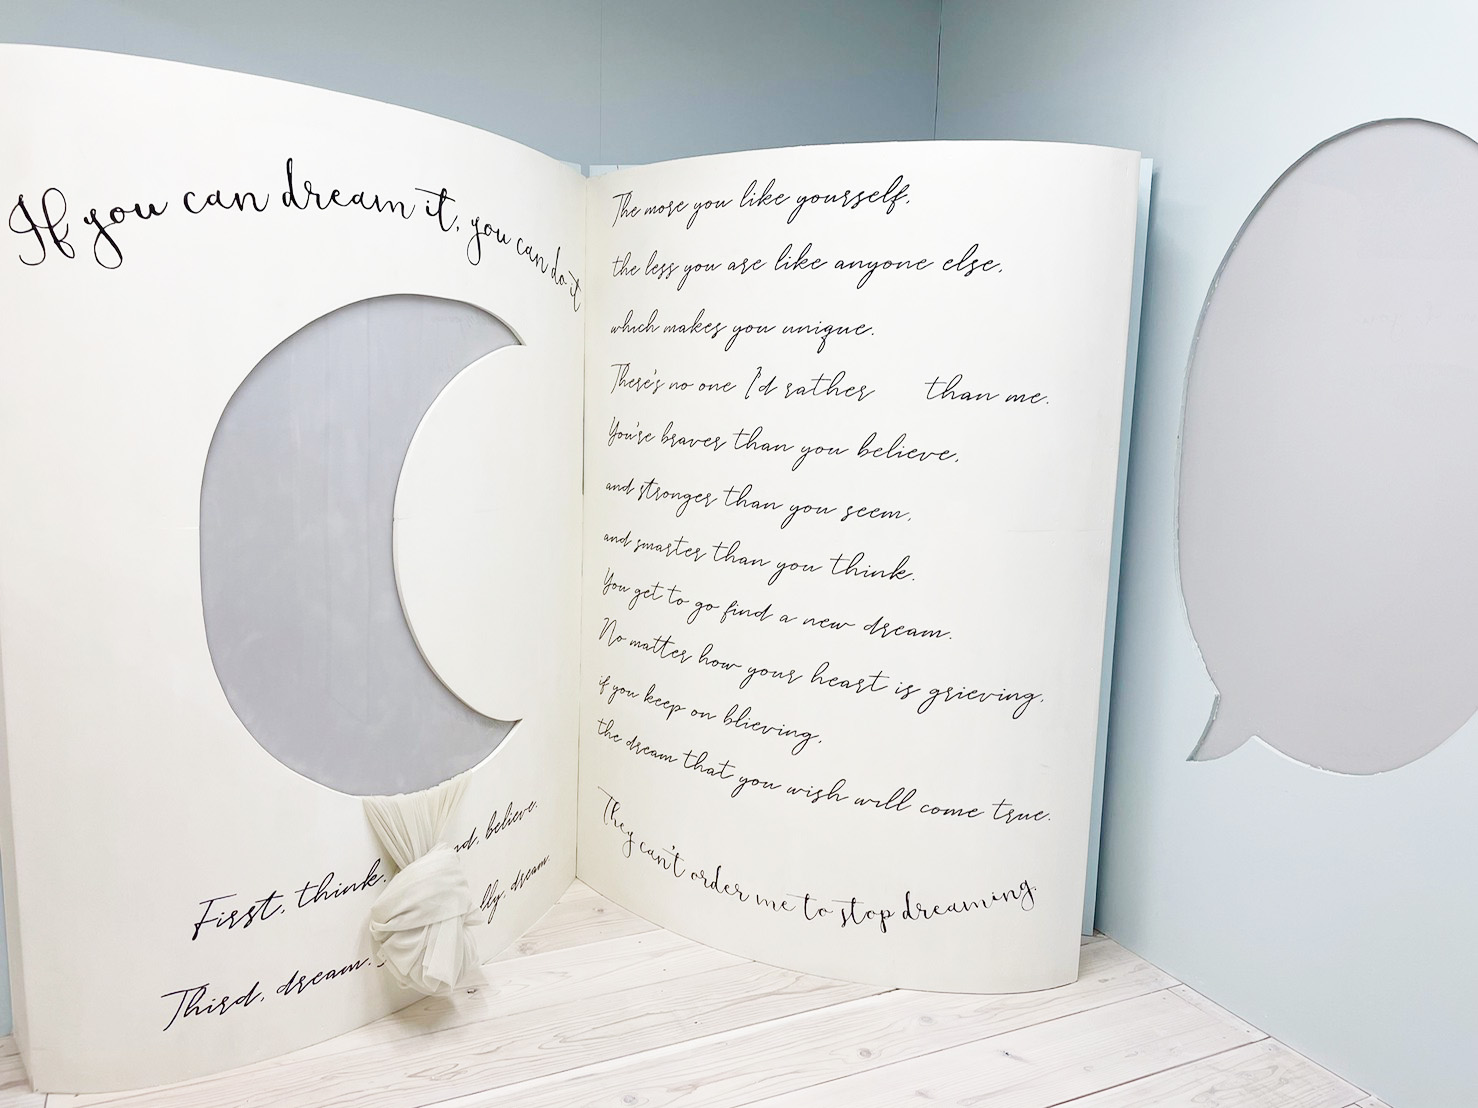 If you can dream it, you can do it
First, think. nd, believe.
Third, dream. lly, dream.
The more you like yourself,
the less you are like anyone else,
which makes you unique.
There's no one I'd rather than me.
You're braver than you believe,
and stronger than you seem,
and smarter than you think.
You get to go find a new dream.
No matter how your heart is grieving,
if you keep on blieving,
the dream that you wish will come true.
They can't order me to stop dreaming.